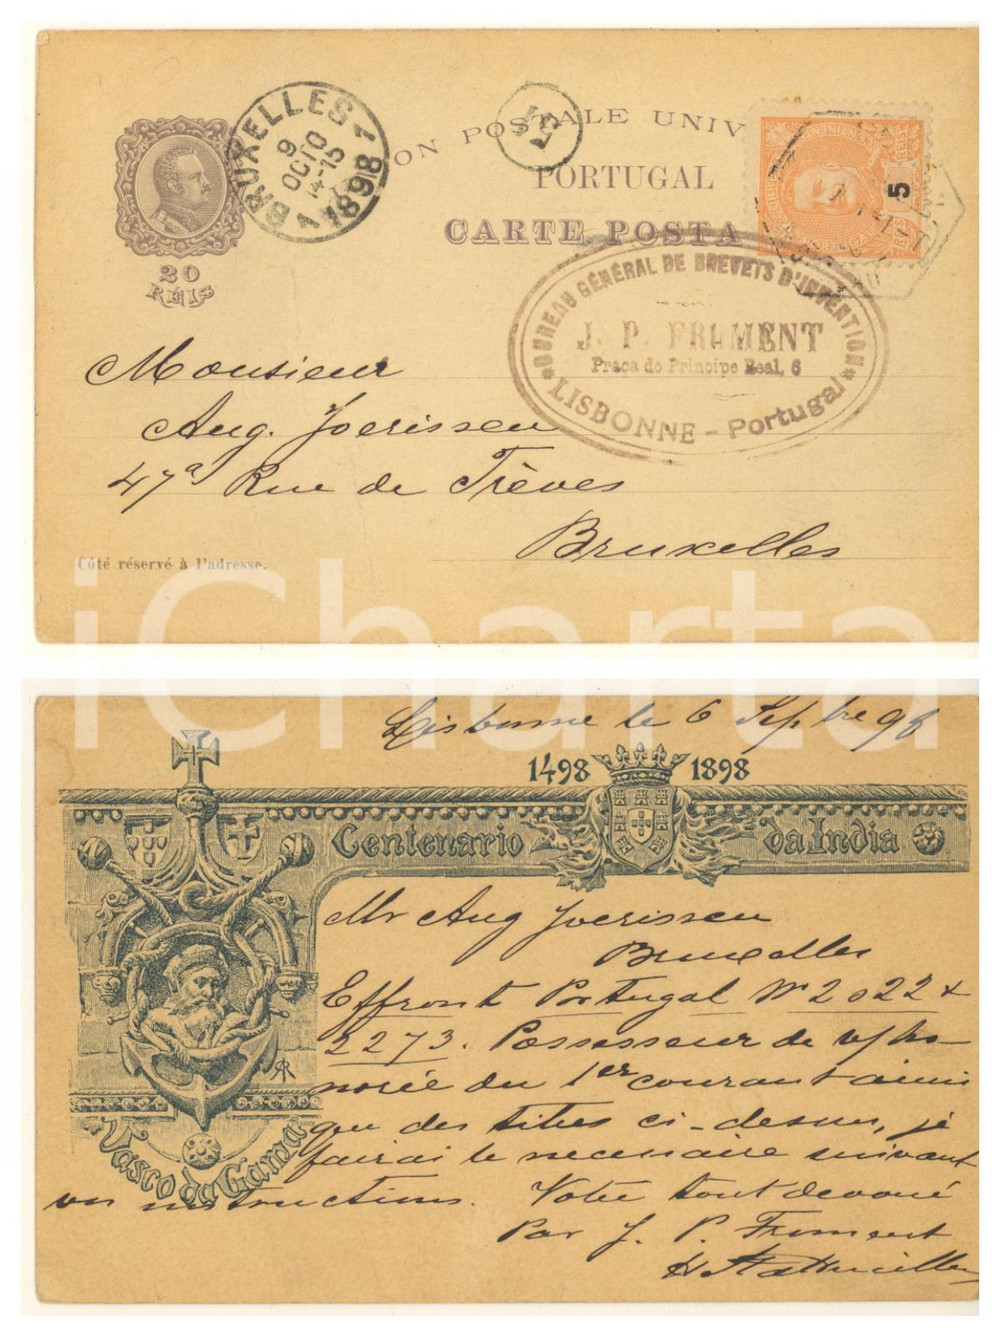 BRUXELLES 1
9
OCTO
14-15
1898
ON POSTALE UNIV
PORTUGAL
CARTE POSTA
20
REIS
5
REIS
BUREAU GÉNÉRAL DE BREVETS D'INVENTION
J. P. FROMENT
Praça do Principe Real, 6
LISBONNE - Portugal
Monsieur
Aug. Joerissen
47a Rue de Trèves
Bruxelles
Côté réservé à l'adresse.
iCharta
Lisbonne le 6 Sepbre 98
1498 1898
Centenario da India
Mr Aug Joerissen
Bruxelles
Effront Portugal No 2022 &
2273. Possesseur de v/ho-
norée du 1er courant ainsi
que des titres ci-dessus, je
fairai le necessaire suivant
vos instructions. Votre tout devoué
Par J. P. Froment
Vasco da Gama